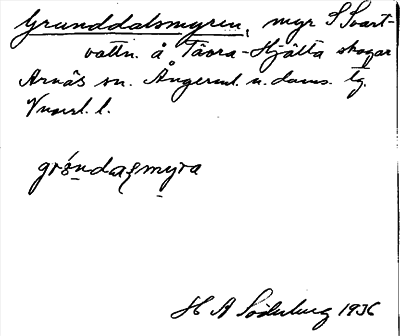 Grunddalsmyren, myr S Svart-
vattn. å Täora-Hjälta skogar
Arnäs sn. Ångerml. n. doms. lg.
Vnorrl. l.
grúndaʂmyra
H A Söderberg 1936